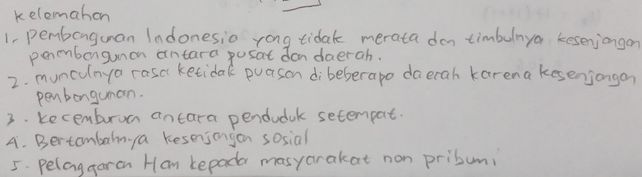 Kelemahan
1. Pembangunan Indonesia yang tidak merata dan timbulnya kesenjangan
penmbangunan antara pusat dan daerah.
2. munculnya rasa ketidak puasan dibeberapa daerah karena kesenjangan
penbangunan.
3. Kecemburuan antara penduduk setempat.
4. Bertambahnya kesenjangan sosial
5. pelanggaran Ham kepada masyarakat non pribumi